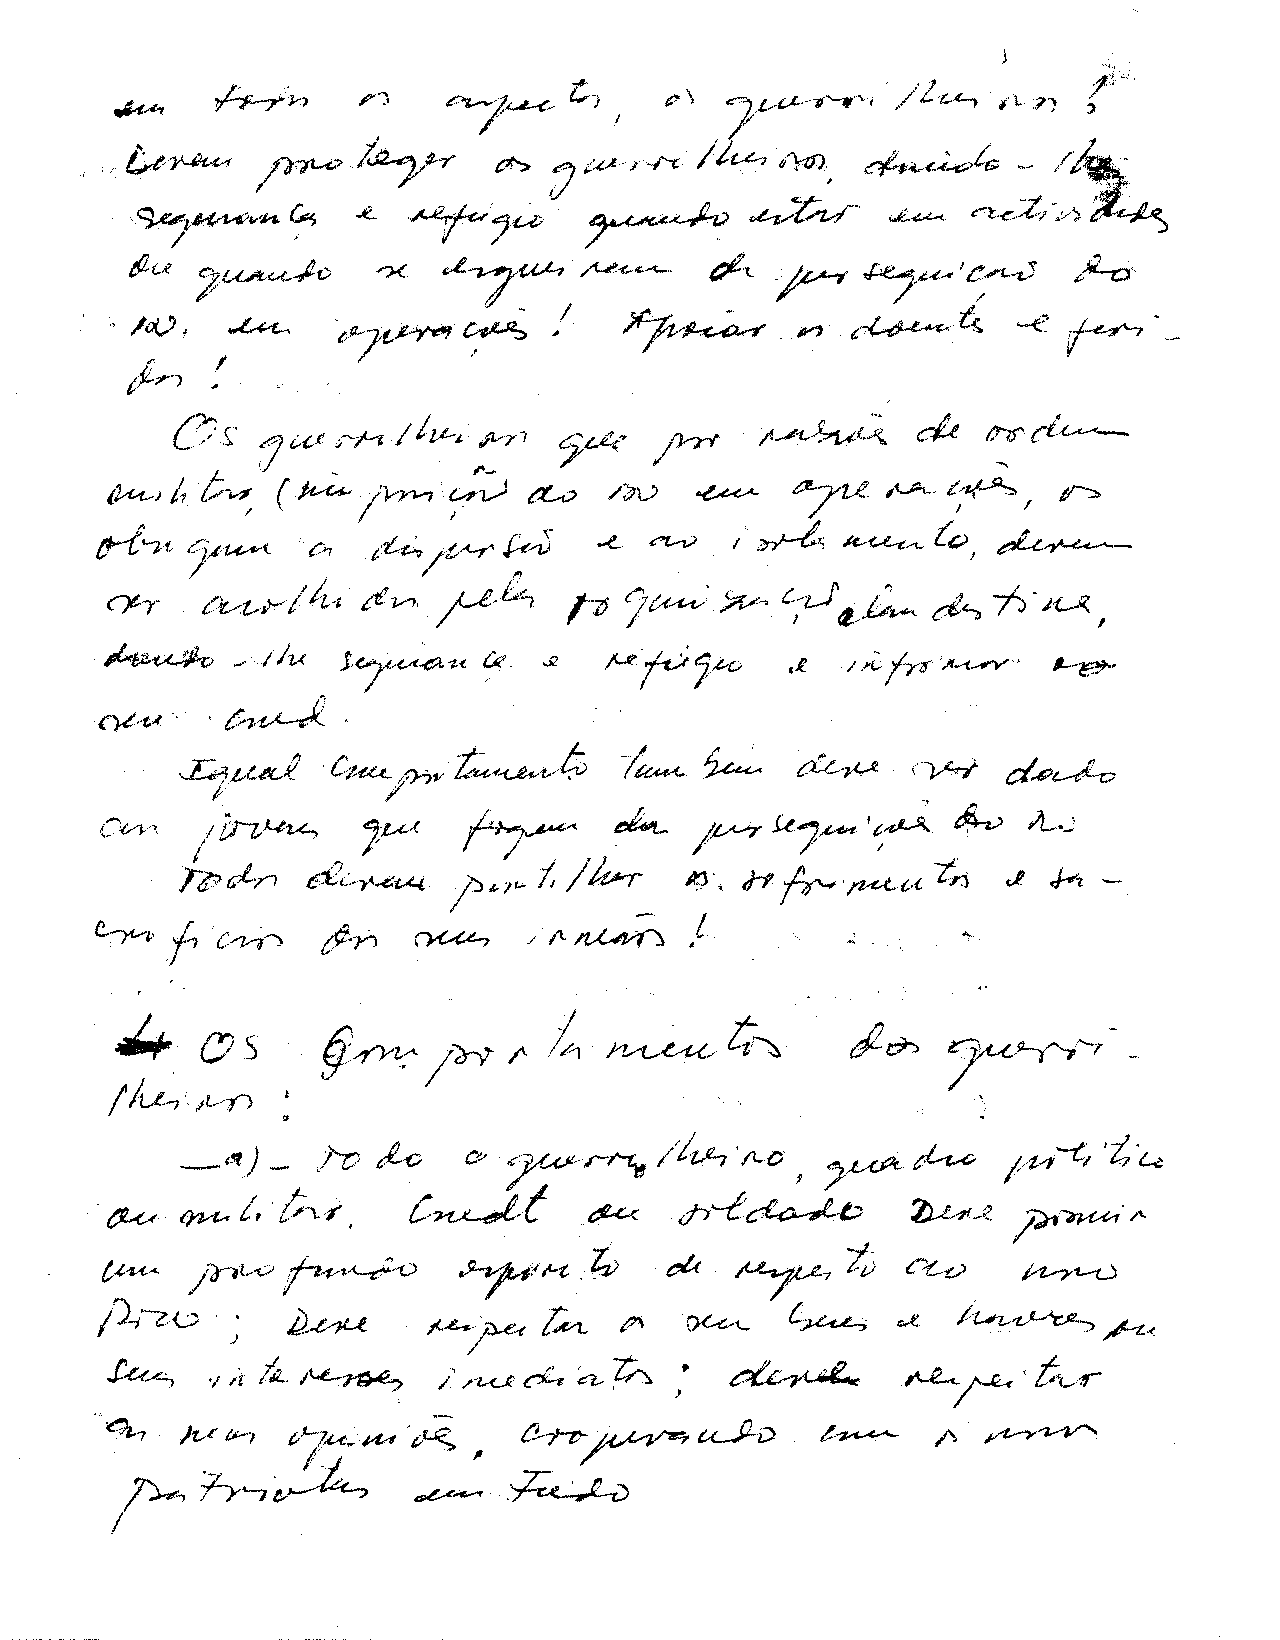 em todos os aspectos, os guerrilheiros!
Devem proteger os guerrilheiros, dando-lhe
segurança e refúgio quando estar em actividades
ou quando se erguerem de perseguição do
em operações! Apoiar os doentes e feri-
dos!
Os guerrilheiros que por razões de ordem
militar, (na posição do em operações, os
obriguem a dispersão e ao isolamento, devem
ser acolhidos pela organização clandestina,
dando-lhe segurança e refúgio e informar ao
seu cmd.
Igual comportamento tambem deve ser dado
aos jovens que fogem da perseguições do
Todos devem partilhar os sofrimentos e sa-
crificios dos seus irmãos!
Os Comportamentos dos guerri-
lheiros:
-a)- Todo o guerrilheiro, quadro politico
ou militar, Cmdt ou soldado Deve possuir
um profundo espirito de respeito ao nosso
Povo; Deve respeitar o seu bens e haveres ou
seus interesses imediatos; deve respeitar
as suas opiniões, cooperando com o nosso
patriotas em Tudo